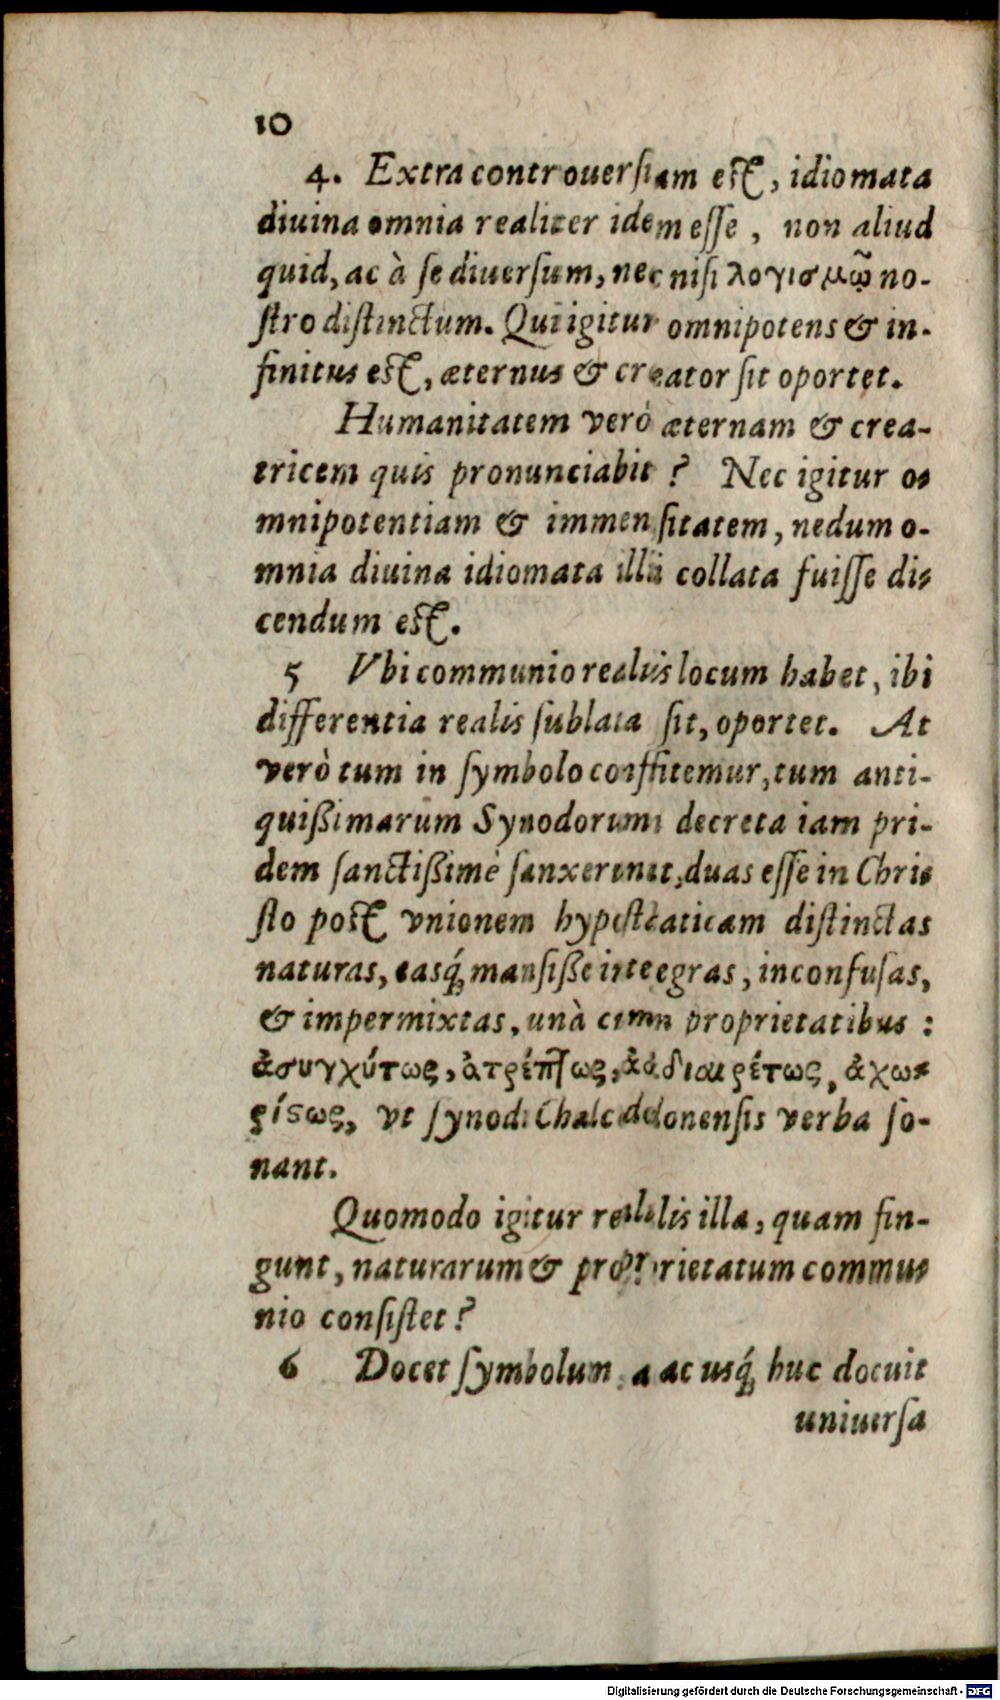 10
4. Extra controuersiam est, idiomata
diuina omnia realiter idem esse, non aliud
quid, ac à se diuersum, nec nisi λογισμῷ no-
stro distinctum. Qui igitur omnipotens & in-
finitus est, æternus & creator sit oportet.
Humanitatem verò æternam & crea-
tricem quis pronunciabit? Nec igitur o-
mnipotentiam & immensitatem, nedum o-
mnia diuina idiomata illi collata fuisse di-
cendum est.
5 Vbi communio realis locum habet, ibi
differentia realis sublata sit, oportet. At
verò tum in symbolo confitemur, tum anti-
quißimarum Synodorum decreta iam pri-
dem sanctißimè sanxerunt, duas esse in Chri-
sto post vnionem hypostaticam distinctas
naturas, easq́; mansiße integras, inconfusas,
& impermixtas, unà cum proprietatibus:
ἀσυγχύτως, ἀτρέπτως, ἀδιαιρέτως, ἀχω-
ρίςως, vt synod. Chalcedonensis verba so-
nant.
Quomodo igitur realis illa, quam fin-
gunt, naturarum & proprietatum commu-
nio consistet?
6 Docet symbolum, ac usq́; huc docuit
uniuersa
Digitalisierung gefördert durch die Deutsche Forschungsgemeinschaft - DFG